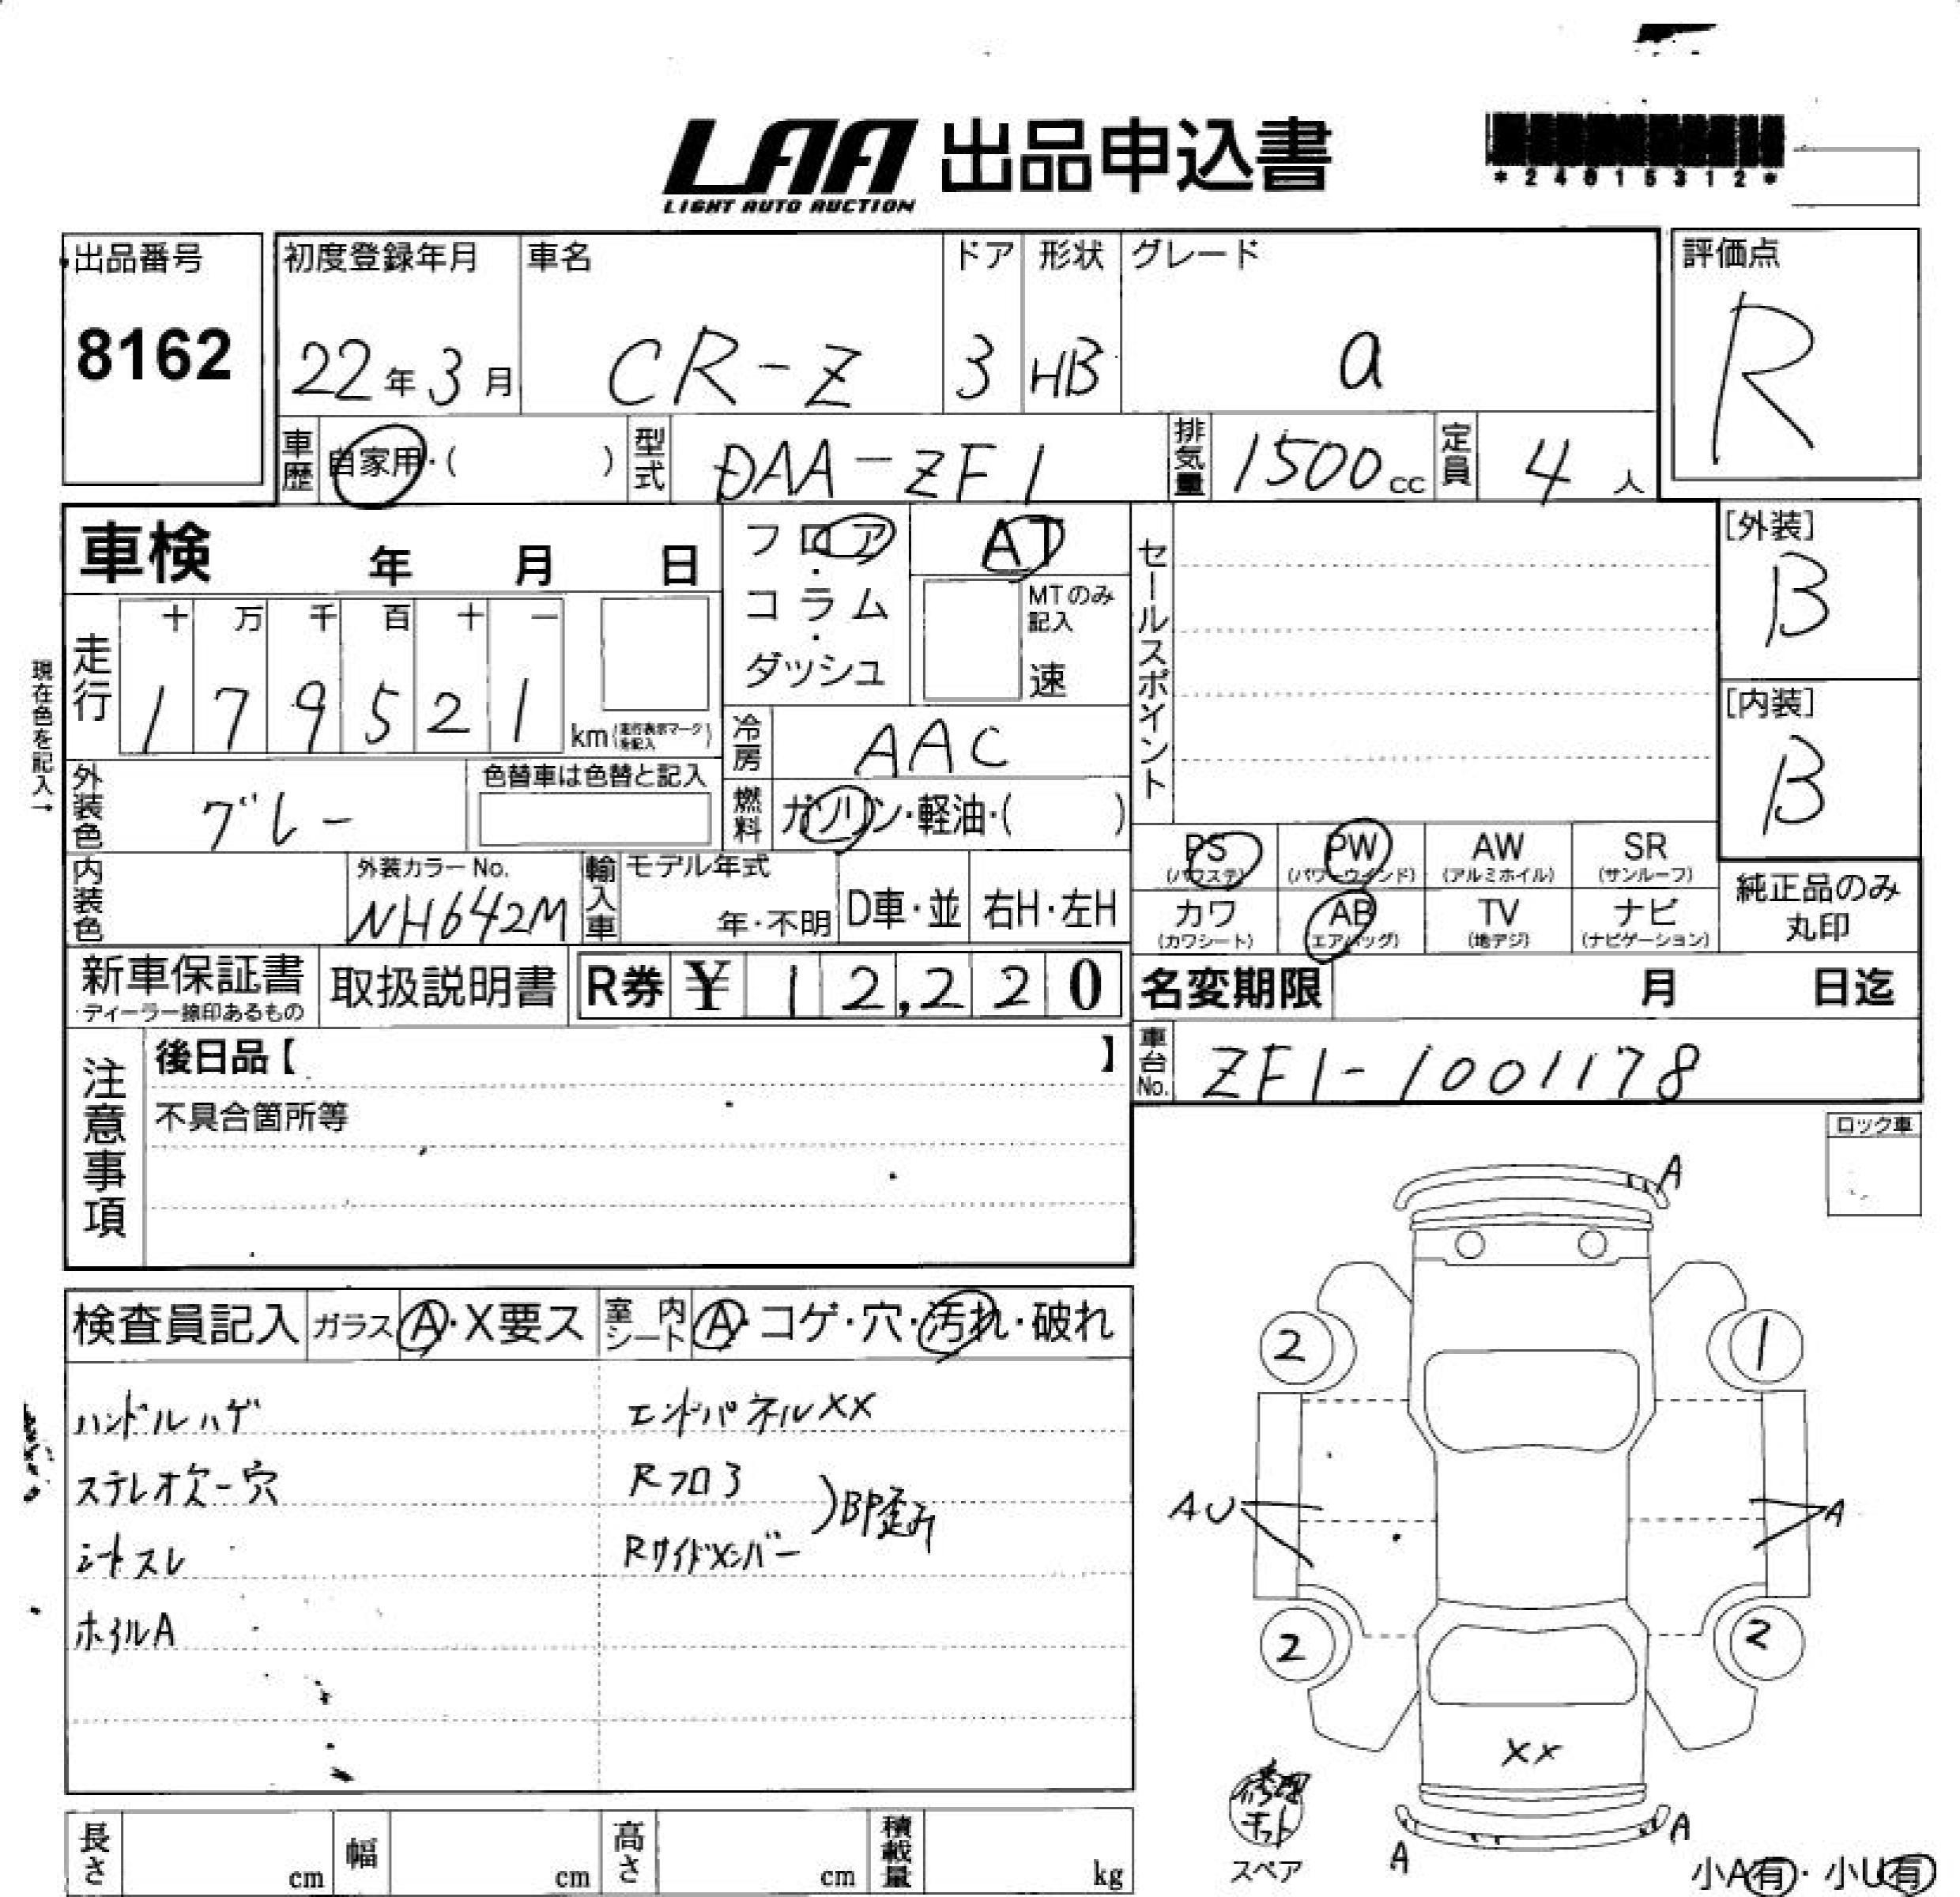 LAA 出品申込書
LIGHT AUTO AUCTION
出品番号
8162
初度登録年月
22年3月
車名
CR-Z
ドア
3
形状
HB
グレード
a
評価点
R
車歴 自家用・( )
型式 DAA-ZF1
排気量 1500cc
定員 4人
車検 年 月 日
フロア・コラム・ダッシュ
AT
MTのみ記入
速
セールスポイント
[外装]
B
現在色を記入→
走行 十 万 千 百 十 一
1 7 9 5 2 1 km (走行表示マークを記入)
[内装]
B
冷房 AAC
外装色 グレー
色替車は色替と記入
燃料 ガソリン・軽油・( )
PS (パワステ) PW (パワーウインド) AW (アルミホイル) SR (サンルーフ)
カワ (カワシート) AB (エアバッグ) TV (地デジ) ナビ (ナビゲーション)
純正品のみ丸印
内装色
外装カラーNo.
NH642M
輸入車 モデル年式
年・不明 D車・並 右H・左H
新車保証書
ディーラー捺印あるもの
取扱説明書
R券 ¥ 12,220
名変期限 月 日迄
注意事項
後日品【 】
不具合箇所等
車台No. ZF1-1001178
ロック車
検査員記入 ガラス A・X要ス 室内シート A・コゲ・穴・汚れ・破れ
ハンドルハゲ エンドパネルXX
ステレオカバー穴 Rフロア
BP歪み
シートスレ Rサイドメンバー
ホイルA
A
2 1
AU A
2 2
XX
修理キット
スペア
A A
小A有・小U有
長さ cm 幅 cm 高さ cm 積載量 kg